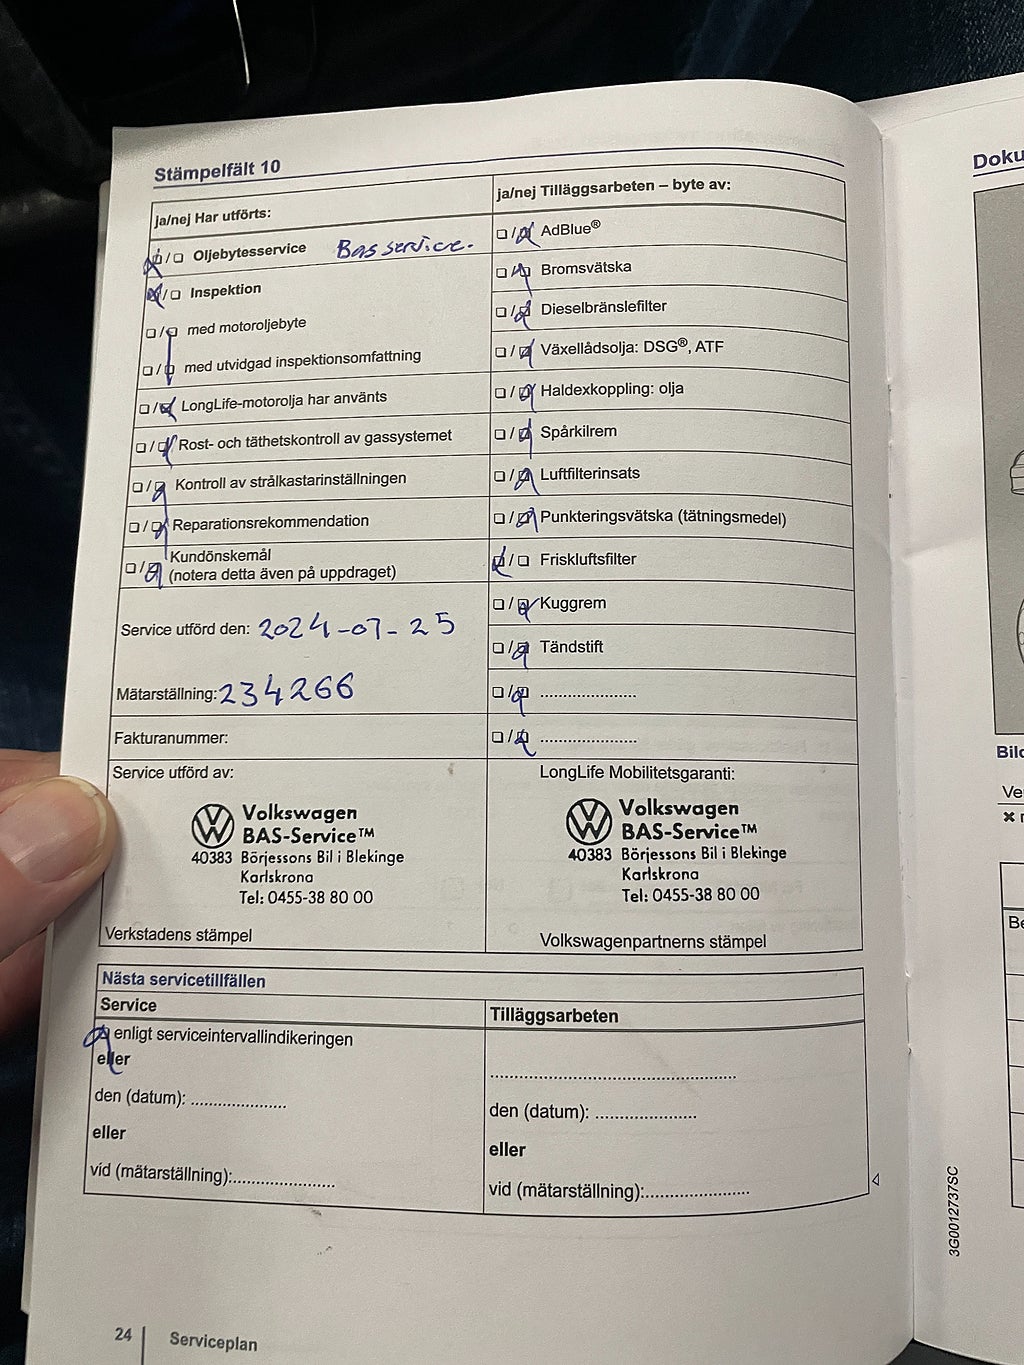 Stämpelfält 10
ja/nej Har utförts:
Oljebytesservice Bas service.
Inspektion
med motoroljebyte
med utvidgad inspektionsomfattning
LongLife-motorolja har använts
Rost- och täthetskontroll av gassystemet
Kontroll av strålkastarinställningen
Reparationsrekommendation
Kundönskemål
(notera detta även på uppdraget)
Service utförd den: 2024-07-25
Mätarställning: 234266
Fakturanummer:
ja/nej Tilläggsarbeten – byte av:
AdBlue®
Bromsvätska
Dieselbränslefilter
Växellådsolja: DSG®, ATF
Haldexkoppling: olja
Spårkilrem
Luftfilterinsats
Punkteringsvätska (tätningsmedel)
Friskluftsfilter
Kuggrem
Tändstift
....................
....................
Service utförd av:
Volkswagen
BAS-Service™
40383 Börjessons Bil i Blekinge
Karlskrona
Tel: 0455-38 80 00
Verkstadens stämpel
LongLife Mobilitetsgaranti:
Volkswagen
BAS-Service™
40383 Börjessons Bil i Blekinge
Karlskrona
Tel: 0455-38 80 00
Volkswagenpartnerns stämpel
Nästa servicetillfällen
Service
enligt serviceintervallindikeringen
eller
den (datum): ....................
eller
vid (mätarställning):.....................
Tilläggsarbeten
..................................................
den (datum): .....................
eller
vid (mätarställning):.....................
24 Serviceplan
3G0012737SC
Doku
Bild
Ve
Be